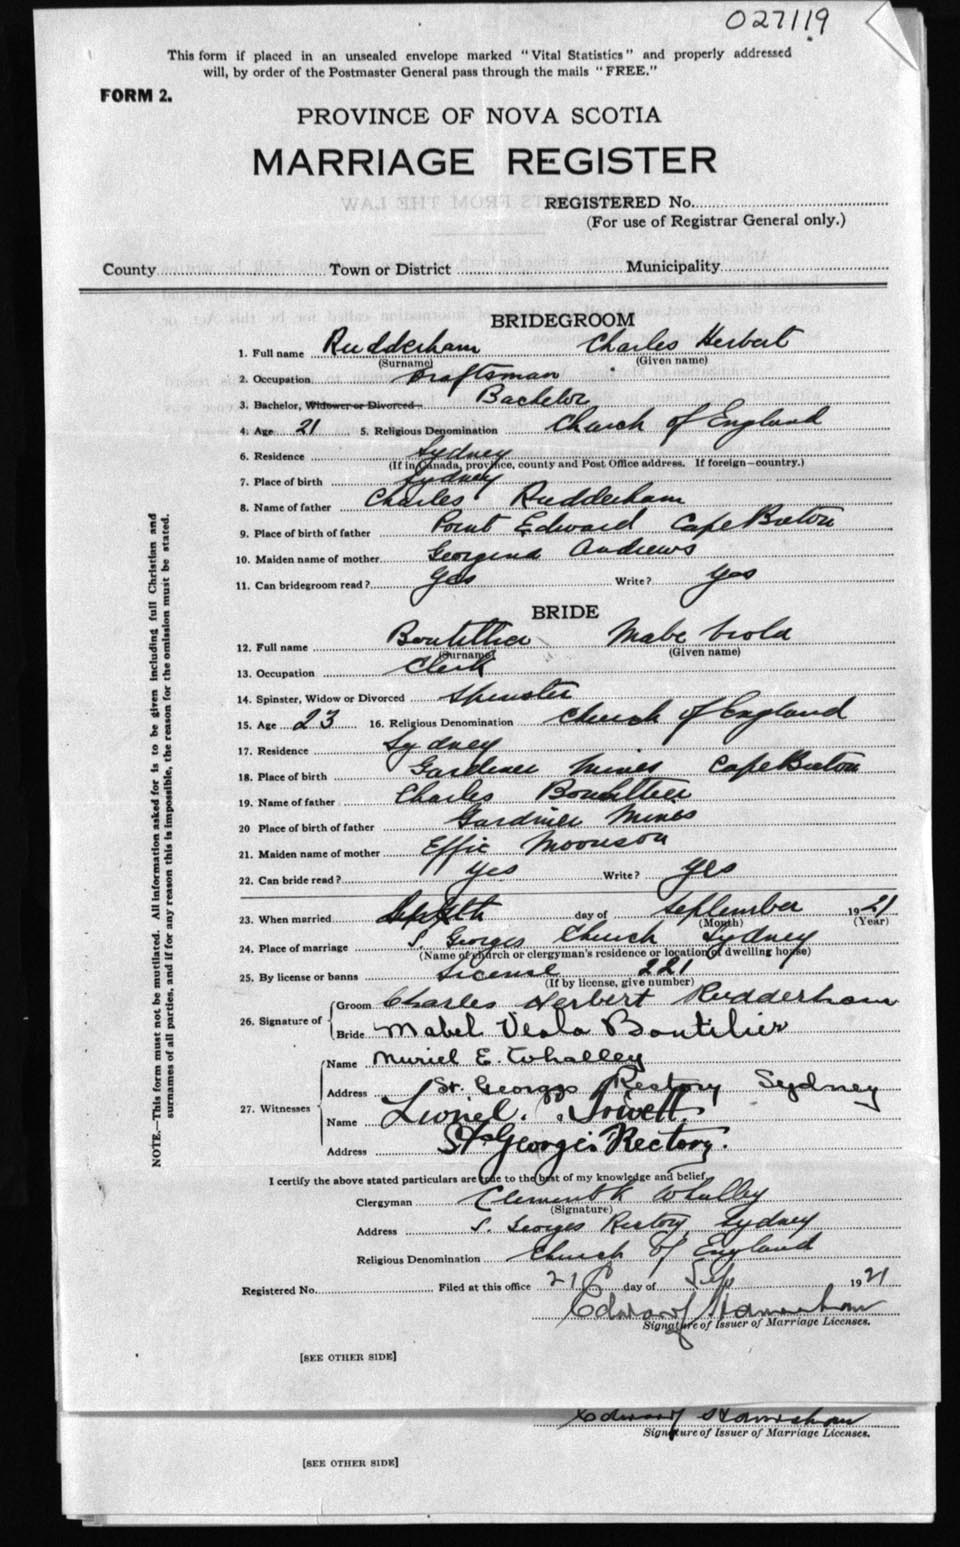 027119
This form if placed in an unsealed envelope marked "Vital Statistics" and properly addressed
will, by order of the Postmaster General pass through the mails "FREE."
FORM 2.
PROVINCE OF NOVA SCOTIA
MARRIAGE REGISTER
REGISTERED No.
(For use of Registrar General only.)
County Town or District Municipality
BRIDEGROOM
1. Full name Rudderham Charles Herbert
(Surname) (Given name)
2. Occupation Draftsman
3. Bachelor, Widower or Divorced Bachelor
4. Age 21 5. Religious Denomination Church of England
6. Residence Sydney
(If in Canada, province, county and Post Office address. If foreign—country.)
7. Place of birth Sydney
8. Name of father Charles Rudderham
9. Place of birth of father Point Edward Cape Breton
10. Maiden name of mother Georgina Andrews
11. Can bridegroom read? Yes Write? Yes
BRIDE
12. Full name Boutillier Mabel Viola
(Surname) (Given name)
13. Occupation Clerk
14. Spinster, Widow or Divorced Spinster
15. Age 23 16. Religious Denomination Church of England
17. Residence Sydney
18. Place of birth Gardiner Mines Cape Breton
19. Name of father Charles Boutillier
20 Place of birth of father Gardiner Mines
21. Maiden name of mother Effie
22. Can bride read? Yes Write? Yes
23. When married day of September 1921
(Month) (Year)
24. Place of marriage S. Georges Church Sydney
(Name of church or clergyman's residence or location of dwelling house)
25. By license or banns License 221
(If by license, give number)
26. Signature of
Groom Charles Herbert Rudderham
Bride Mabel Viola Boutilier
27. Witnesses
Name Muriel E. Whalley
Address St. Georges Rectory Sydney
Name Lionel
Address St. George's Rectory.
I certify the above stated particulars are true to the best of my knowledge and belief.
Clergyman Whalley
(Signature)
Address S. Georges Rectory Sydney
Religious Denomination Church of England
Registered No. Filed at this office 21 day of Sep 1921
Edward
Signature of Issuer of Marriage Licenses.
[SEE OTHER SIDE]
NOTE.—This form must not be mutilated. All information asked for is to be given including full Christian and
surnames of all parties, and if for any reason this is impossible, the reason for the omission must be stated.
Edward
Signature of Issuer of Marriage Licenses.
[SEE OTHER SIDE]